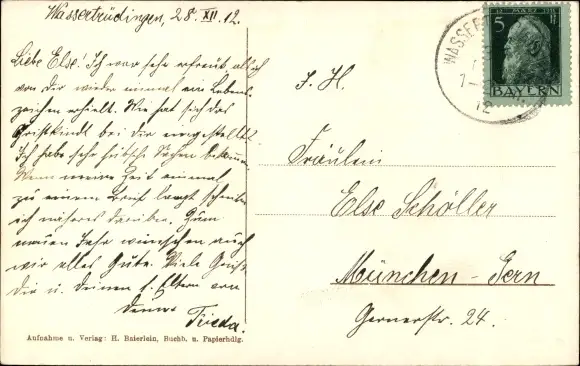 Wassertrüdingen, 28. XII. 12.
Liebe Else! Ich war sehr erfreut, als ich
von dir wieder einmal ein Lebens-
zeichen erhielt. Wie hat sich das
Christkindl bei dir eingestellt?
Ich habe sehr hübsche Sachen bekommen.
Wenn meine Zeit einmal
zu einem Brief langt schreibe
ich näheres darüber. Zum
neuen Jahr wünschen auch
wir alles Gute. Viele Grüße
dir u. deinen l. Eltern von
deiner
Frieda.
Aufnahme u. Verlag: H. Baierlein, Buchb. u. Papierhdlg.
WASSERT
12
5
12 MÄRZ 1911
BAYERN
S. H.
Fräulein
Else Schöller
München-Gern
Gernerstr. 24.